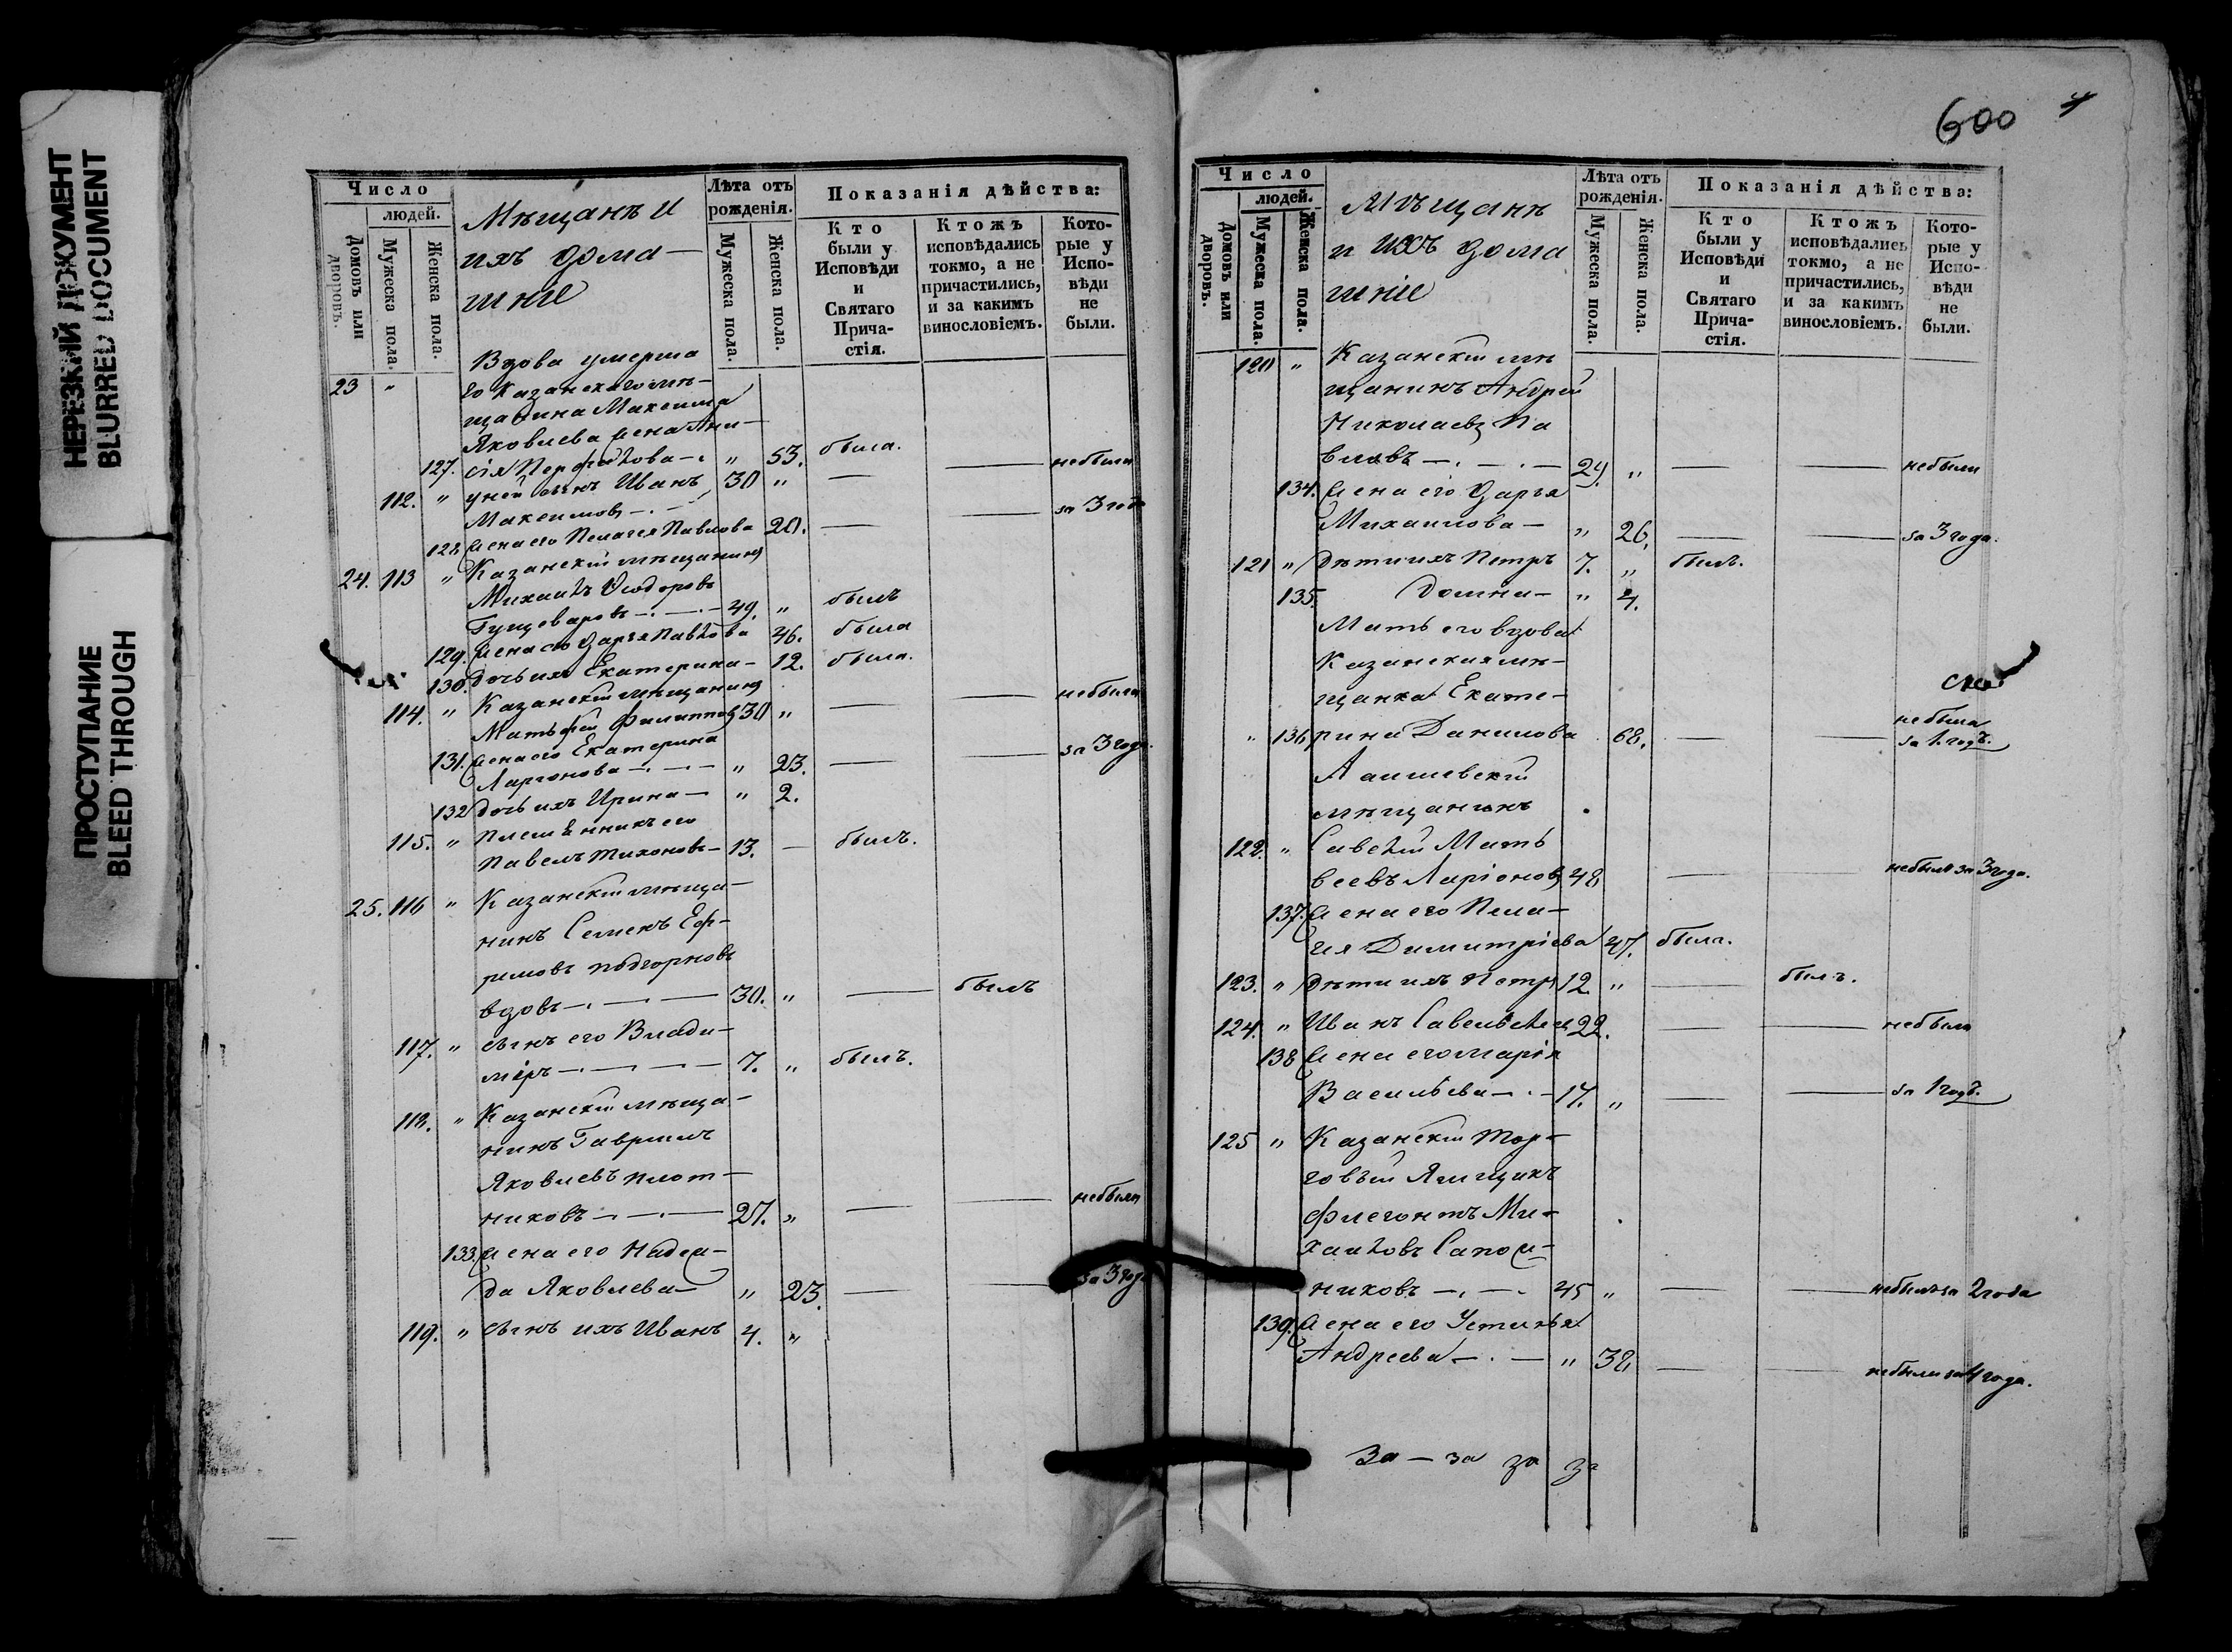 НЕРЕЗКИЙ ДОКУМЕНТ
BLURRED DOCUMENT
ПРОСТУПАНИЕ
BLEED THROUGH
Число
людей.
Домовъ или дворовъ.
Мужеска пола.
Женска пола.
Мѣщанъ и
ихъ дома-
шніе
Лѣта отъ
рожденія.
Мужеска пола.
Женска пола.
Показанія дѣйства:
Кто
были у
Исповѣди
и
Святаго
Прича-
стія.
Ктожъ
исповѣдались
токмо, а не
причастились,
и за какимъ
винословіемъ.
Кото-
рые у
Испо-
вѣди
не
были.
Вдова умерша
23 " го Казанскаго мѣ-
щанина Максима
Яковлева жена Ани-
127. сія — " 53. была.
112. " у ней сынъ Иванъ 30 " — — небыли
Максимовъ —
128 жена его Пелагея Павлова 20. — — за 3 года
24. 113 " Казанскій мѣщанинъ
Михаилъ Ѳиодоровъ
— 49. " былъ
129. жена его Дарья Павлова 46. была
130. дочь ихъ Екатерина — 12. была.
114. " Казанскій мѣщанинъ
Матьфей Филипповъ 30 " — — небыли
131. жена его Екатерина
Ларионова — " 23. — — за 3 года.
132 дочь ихъ Ирина — " 2.
115. " племянникъ его
Павелъ Тихоновъ — 13. — былъ.
25. 116 " Казанскій мѣща-
нинъ Семенъ Еф-
римовъ Подгорновъ
вдовъ — 30. " — былъ
117. " сынъ его Влади-
міръ — 7. " былъ.
118. " Казанскій мѣща-
нинъ Гавриилъ
Яковлевъ плот-
никовъ — 27. " — — небыли
133. жена его Надеж-
да Яковлева — " 23. — — за 3 года
119. " сынъ ихъ Иванъ 4. "
600
Число
людей.
Домовъ или дворовъ.
Мужеска пола.
Женска пола.
Мѣщанъ
и ихъ дома
шніе
Лѣта отъ
рожденія.
Мужеска пола.
Женска пола.
Показанія дѣйства:
Кто
были у
Исповѣди
и
Святаго
Прича-
стія.
Ктожъ
исповѣдались
токмо, а не
причастились,
и за какимъ
винословіемъ.
Кото-
рые у
Испо-
вѣди
не
были.
120 " Казанскій мѣ
щанинъ Андрей
Николаевъ Па
вловъ — 29. " — — небыли
134. жена его Дарья
Михаилова — " 26. — — за 3 года.
121 " Дѣти ихъ Петръ 7. " былъ.
135. Домна — " 4.
Мать его вдова
Казанская мѣ-
щанка Екате-
" 136 рина Данилова 68. — — небыла
за 1. годъ.
Лаишевскій
мѣщанинъ
122. " Савелій Мать
веевъ Ларіоновъ 48 — — небылъ за 3 года.
137. жена его Пела-
гея Димитріева 47. была.
123. " Дѣти ихъ Петръ 12. " — былъ.
124. " Иванъ Савельевъ 22. — — небыли
138 жена его Марія
Васильева — 17. " — — за 1 годъ.
125 " Казанскій Тор-
говый Ямщикъ
Флегонтъ Ми-
хаиловъ Сапож-
никовъ — 45 " — — небылъ за 2 года
139. жена его Устинья
Андреева — " 38. — — небыли за 4 года.
За — за за за